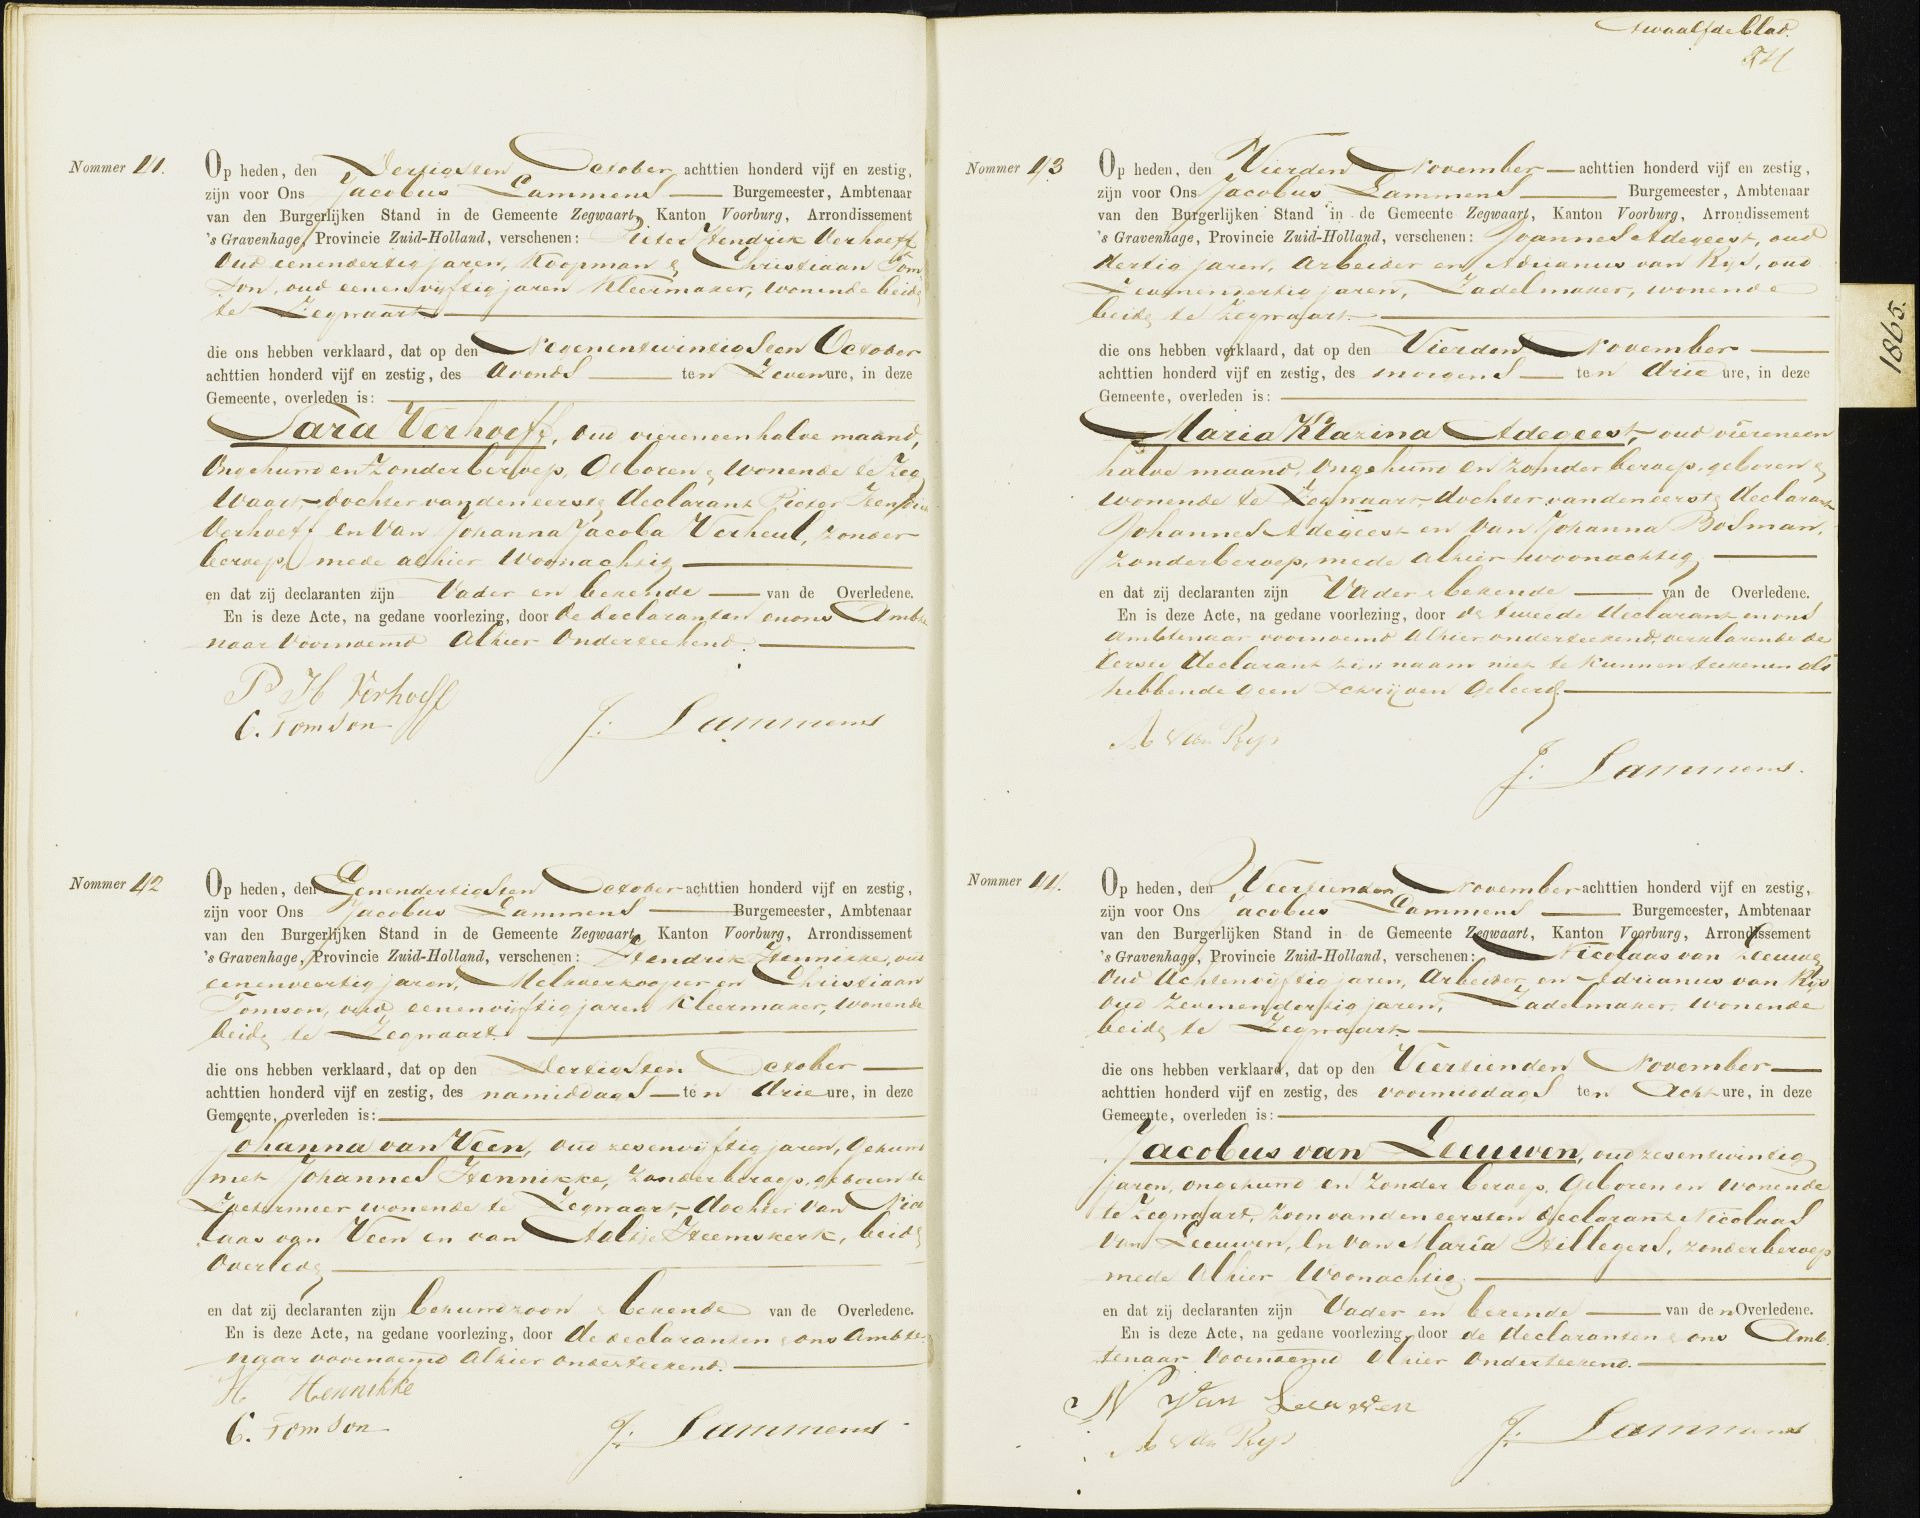 Nommer 41.
Op heden, den Dertigsten October achttien honderd vijf en zestig,
zijn voor Ons Jacobus Lammens Burgemeester, Ambtenaar
van den Burgerlijken Stand in de Gemeente Zegwaart, Kanton Voorburg, Arrondissement
's Gravenhage, Provincie Zuid-Holland, verschenen: Pieter Hendrik Verhoeff
Oud eenendertig jaren, Koopman & Christiaan Tom
son, oud eenenvijftig jaren Kleermaker, wonende beide
te Zegwaart
die ons hebben verklaard, dat op den Negenentwintigsteen October
achttien honderd vijf en zestig, des avonds ten Zeven ure, in deze
Gemeente, overleden is:
Sara Verhoeff, oud viereneenhalve maand,
Ongehuwd en zonder beroep, Geboren & wonende te Zeg
waart, dochter van den eerste declarant Pieter Hendrik
Verhoeff en van Johanna Jacoba Verheul, zonder
beroep, mede alhier woonachtig
en dat zij declaranten zijn Vader en bekende van de Overledene.
En is deze Acte, na gedane voorlezing, door de declaranten en ons Ambte
naar voornoemd alhier onderteekend.
P H Verhoeff
C. Tomson
J. Lammens
Nommer 42
Op heden, den Eenendertigsten October achttien honderd vijf en zestig,
zijn voor Ons Jacobus Lammens Burgemeester, Ambtenaar
van den Burgerlijken Stand in de Gemeente Zegwaart, Kanton Voorburg, Arrondissement
's Gravenhage, Provincie Zuid-Holland, verschenen: Hendrik Hennikke, oud
eenenveertig jaren, Melkverkooper en Christiaan
Tomson, oud eenenvijftig jaren Kleermaker, wonende
beide te Zegwaart.
die ons hebben verklaard, dat op den Dertigsten October
achttien honderd vijf en zestig, des namiddags ten drie ure, in deze
Gemeente, overleden is:
Johanna van Veen, oud zesenvijftig jaren, Gehuwd
met Johannes Hennikke, zonder beroep, geboren te
Zoetermeer wonende te Zegwaart, dochter van Nico
laas van Veen en van Aaltje Heemskerk, beide
Overleden
en dat zij declaranten zijn behuwdzoon & bekende van de Overledene.
En is deze Acte, na gedane voorlezing, door de declaranten & ons Ambte
naar voornoemd alhier onderteekend.
H. Hennikke
C. Tomson
J. Lammens
twaalfde blad.
Nommer 43
Op heden, den Vierden November achttien honderd vijf en zestig,
zijn voor Ons Jacobus Lammens Burgemeester, Ambtenaar
van den Burgerlijken Stand in de Gemeente Zegwaart, Kanton Voorburg, Arrondissement
's Gravenhage, Provincie Zuid-Holland, verschenen: Joannes Adegeest, oud
dertig jaren, arbeider en Adrianus van Rijs, oud
Zevenendertig jaren, Zadelmaker, wonende
beide te Zegwaart.
die ons hebben verklaard, dat op den Vierden November
achttien honderd vijf en zestig, des morgens ten drie ure, in deze
Gemeente, overleden is:
Maria Klazina Adegeest, oud viereneen
halve maand, ongehuwd en zonder beroep, geboren &
wonende te Zegwaart dochter van den eerste declarant
Johannes Adegeest en van Johanna Bosman,
zonder beroep, mede alhier woonachtig
en dat zij declaranten zijn Vader & bekende van de Overledene.
En is deze Acte, na gedane voorlezing, door de tweede declarant en ons
ambtenaar voornoemd alhier onderteekend, verklarende de
Eerste declarant zijn naam niet te kunnen teekenen als
hebbende geen schrijven geleerd
A van Rijs
J. Lammens.
Nommer 44.
Op heden, den Veertienden November achttien honderd vijf en zestig,
zijn voor Ons Jacobus Lammens Burgemeester, Ambtenaar
van den Burgerlijken Stand in de Gemeente Zegwaart, Kanton Voorburg, Arrondissement
's Gravenhage, Provincie Zuid-Holland, verschenen: Nicolaas van Leeuwen
Oud Achtenvijftig jaren, Arbeider, en Adrianus van Rijs
oud Zevenendertig jaren, Zadelmaker, wonende
beide te Zegwaart
die ons hebben verklaard, dat op den Veertienden November
achttien honderd vijf en zestig, des voormiddags ten Acht ure, in deze
Gemeente, overleden is:
Jacobus van Leeuwen, oud zesentwintig
jaren, ongehuwd en zonder beroep, Geboren en wonende
te Zegwaart, zoon van den eersten declarant Nicolaas
van Leeuwen, en van Maria Hillegers, zonder beroep
mede Alhier Woonachtig
en dat zij declaranten zijn Vader en bekende van den Overledene.
En is deze Acte, na gedane voorlezing, door de declaranten & ons Amb
tenaar voornoemd Alhier Onderteekend.
N van Leeuwen
A van Rijs
J. Lammens
1865.